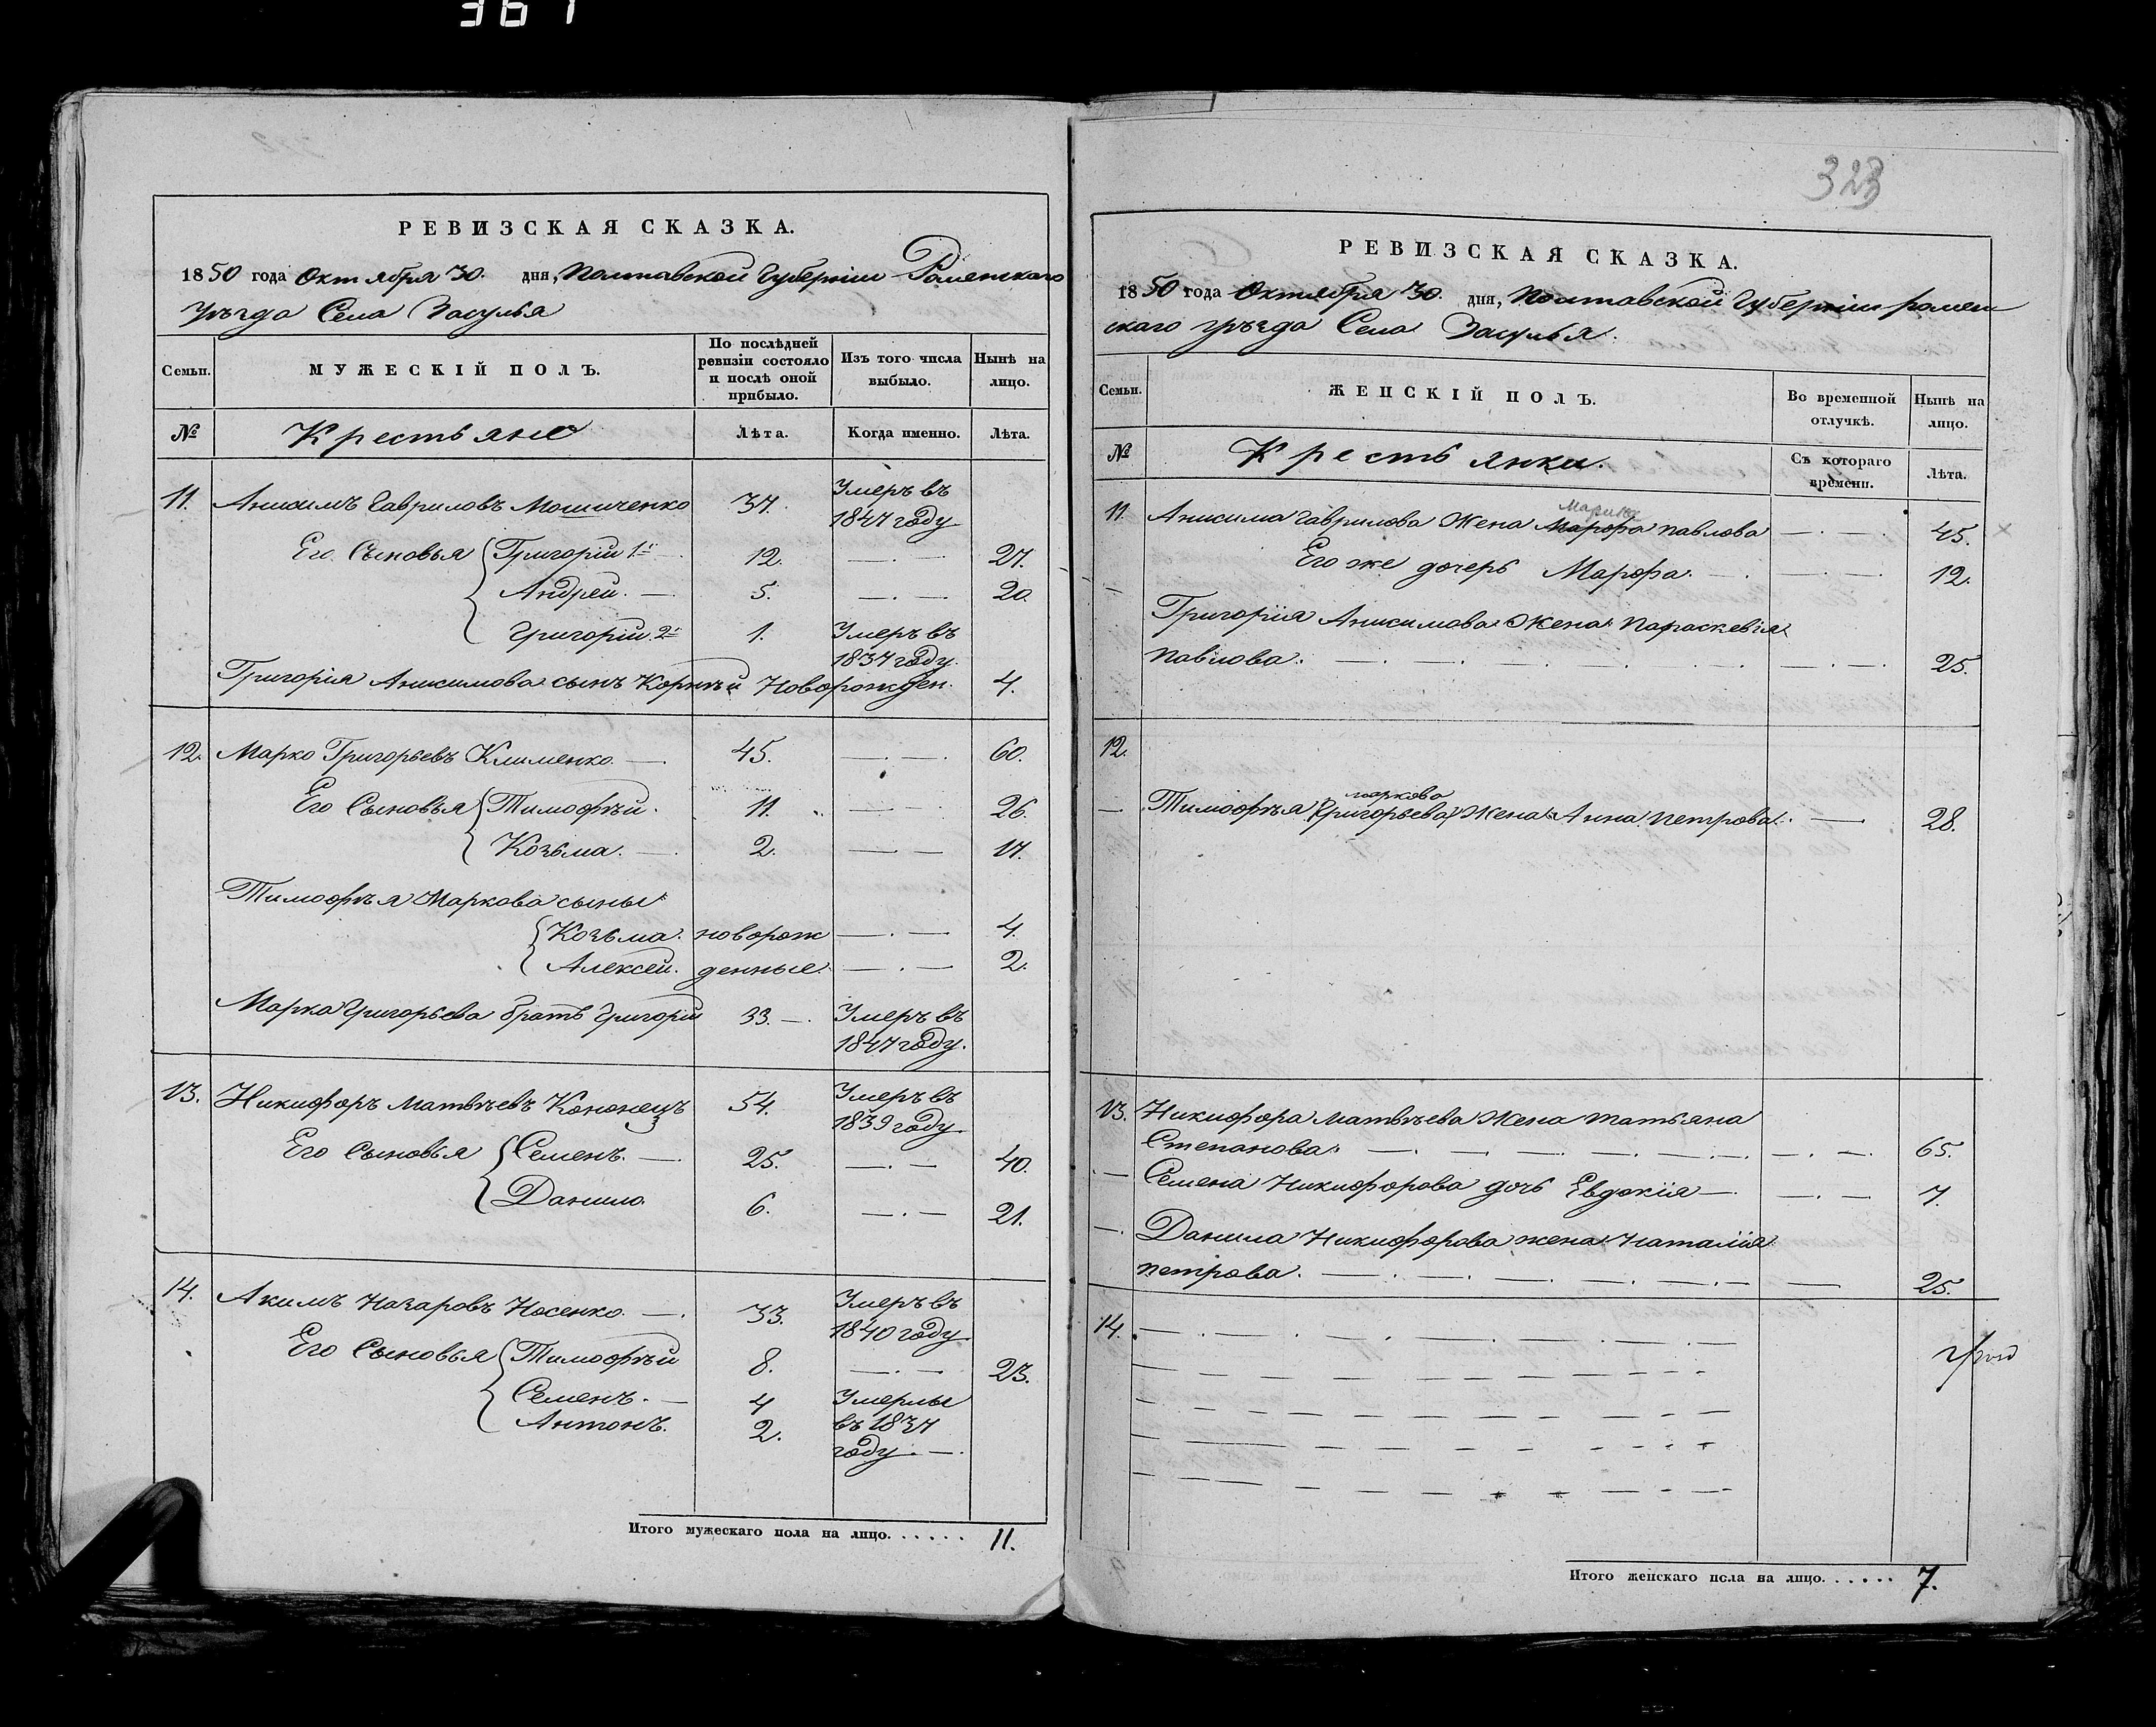 367
РЕВИЗСКАЯ СКАЗКА.
1850 года Октября 30. дня, Полтавской Губернiи Роменскаго
уѣзда Села Засулья
Семьи. МУЖЕСКIЙ ПОЛЪ. По послѣдней ревизiи состояло и послѣ оной прибыло. Изъ того числа выбыло. Нынѣ на лицо.
№ Крестьяне Лѣта. Когда именно. Лѣта.
11. Анисимъ Гавриловъ Мошиченко 37. Умеръ въ 1847 году
Его Сыновья Григорiй 1й 12. 27.
Андрей. 5. 20.
Григорiй 2й 1. Умеръ въ 1837 году.
Григорiя Анисимова сынъ Корнѣй Новорожден. 4.
12. Марко Григорьевъ Клименко. 45. 60.
Его Сыновья Тимофѣй. 11. 26.
Козьма. 2. 17.
Тимофѣя Маркова сыны
Козьма. новорож 4.
Алексей. денные. 2.
Марка Григорьева братъ Григорiй 33. Умеръ въ 1847 году.
13. Никифоръ Матвѣевъ Кононецъ 54. Умеръ въ 1839 году.
Его Сыновья Семенъ. 25. 40.
Данило. 6. 21.
14. Акимъ Назаровъ Носенко. 33. Умеръ въ 1840 году
Его Сыновья Тимофѣй 8. 23.
Семенъ. 4 Умерлы
Антонъ. 2. въ 1837
году.
Итого мужескаго пола на лицо...... 11.
323
РЕВИЗСКАЯ СКАЗКА.
1850 года Октября 30. дня, Полтавской Губернiи ромен
скаго уѣзда Села Засулья.
Семьи. ЖЕНСКIЙ ПОЛЪ. Во временной отлучкѣ. Нынѣ на лицо.
№ Крестьянки. Съ котораго времени. Лѣта.
11. Анисима Гаврилова Жена Марфа павлова 45.
Его же дочерь Марфа. 12.
Григорiя Анисимова Жена Параскевiя
Павлова. 25.
12.
маркова
Тимофѣя (Григорьева) Жена Анна Петрова. 28.
13. Никифора Матвѣева Жена татьяна
Степанова. 65.
Семена Никифорова дочь Евдокiя 7.
Данила Никифорова жена Наталiя
петрова. 25.
14.
Итого женскаго пола на лицо...... 7.